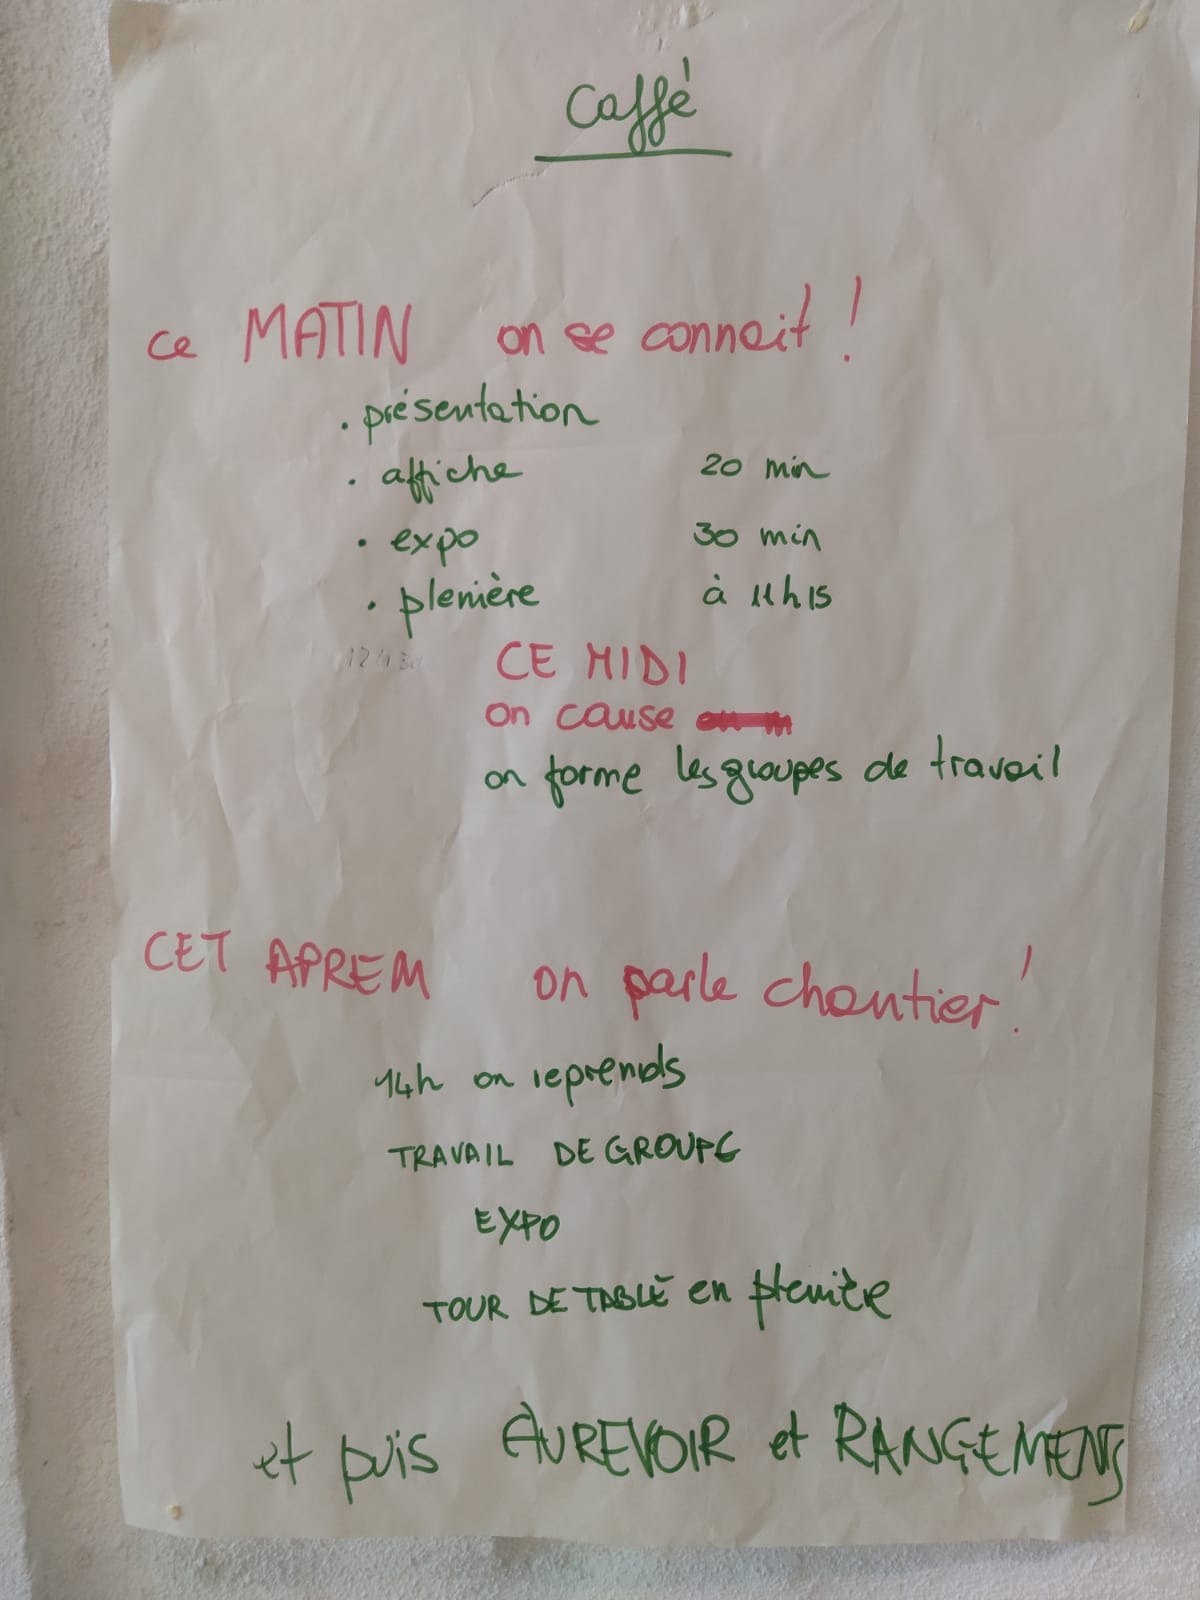 Caffè
ce MATIN on se connait !
. présentation
. affiche 20 min
. expo 30 min
. plenière à 11h15
CE MIDI
on cause
on forme les groupes de travail
CET APREM on parle chantier !
14h on reprends
TRAVAIL DE GROUPE
EXPO
TOUR DE TABLE en plenière
et puis AUREVOIR et RANGEMENTS